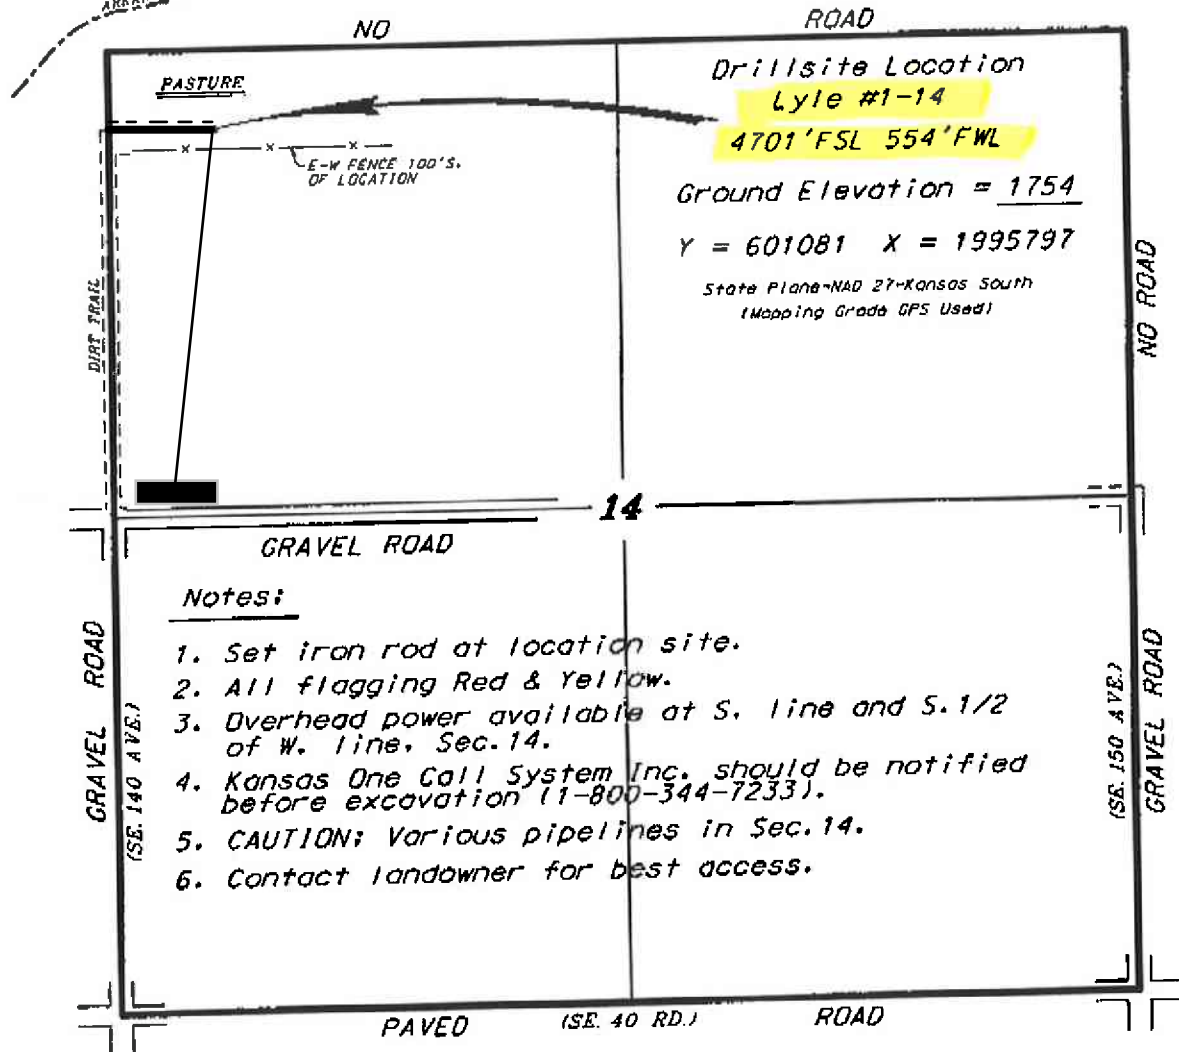 NO
ROAD
PASTURE
Drillsite Location
Lyle #1-14
4701'FSL 554'FWL
E-W FENCE 100'S.
OF LOCATION
Ground Elevation = 1754
Y = 601081 X = 1995797
State Plane-NAD 27-Kansas South
(Mapping Grade GPS Used)
DIRT TRAIL
NO ROAD
14
GRAVEL ROAD
Notes:
1. Set iron rod at location site.
2. All flagging Red & Yellow.
3. Overhead power available at S. line and S.1/2
of W. line, Sec.14.
4. Kansas One Call System Inc. should be notified
before excavation (1-800-344-7233).
5. CAUTION: Various pipelines in Sec.14.
6. Contact landowner for best access.
GRAVEL ROAD
(SE. 140 AVE.)
(SE. 150 AVE.)
GRAVEL ROAD
PAVED
(SE. 40 RD.)
ROAD